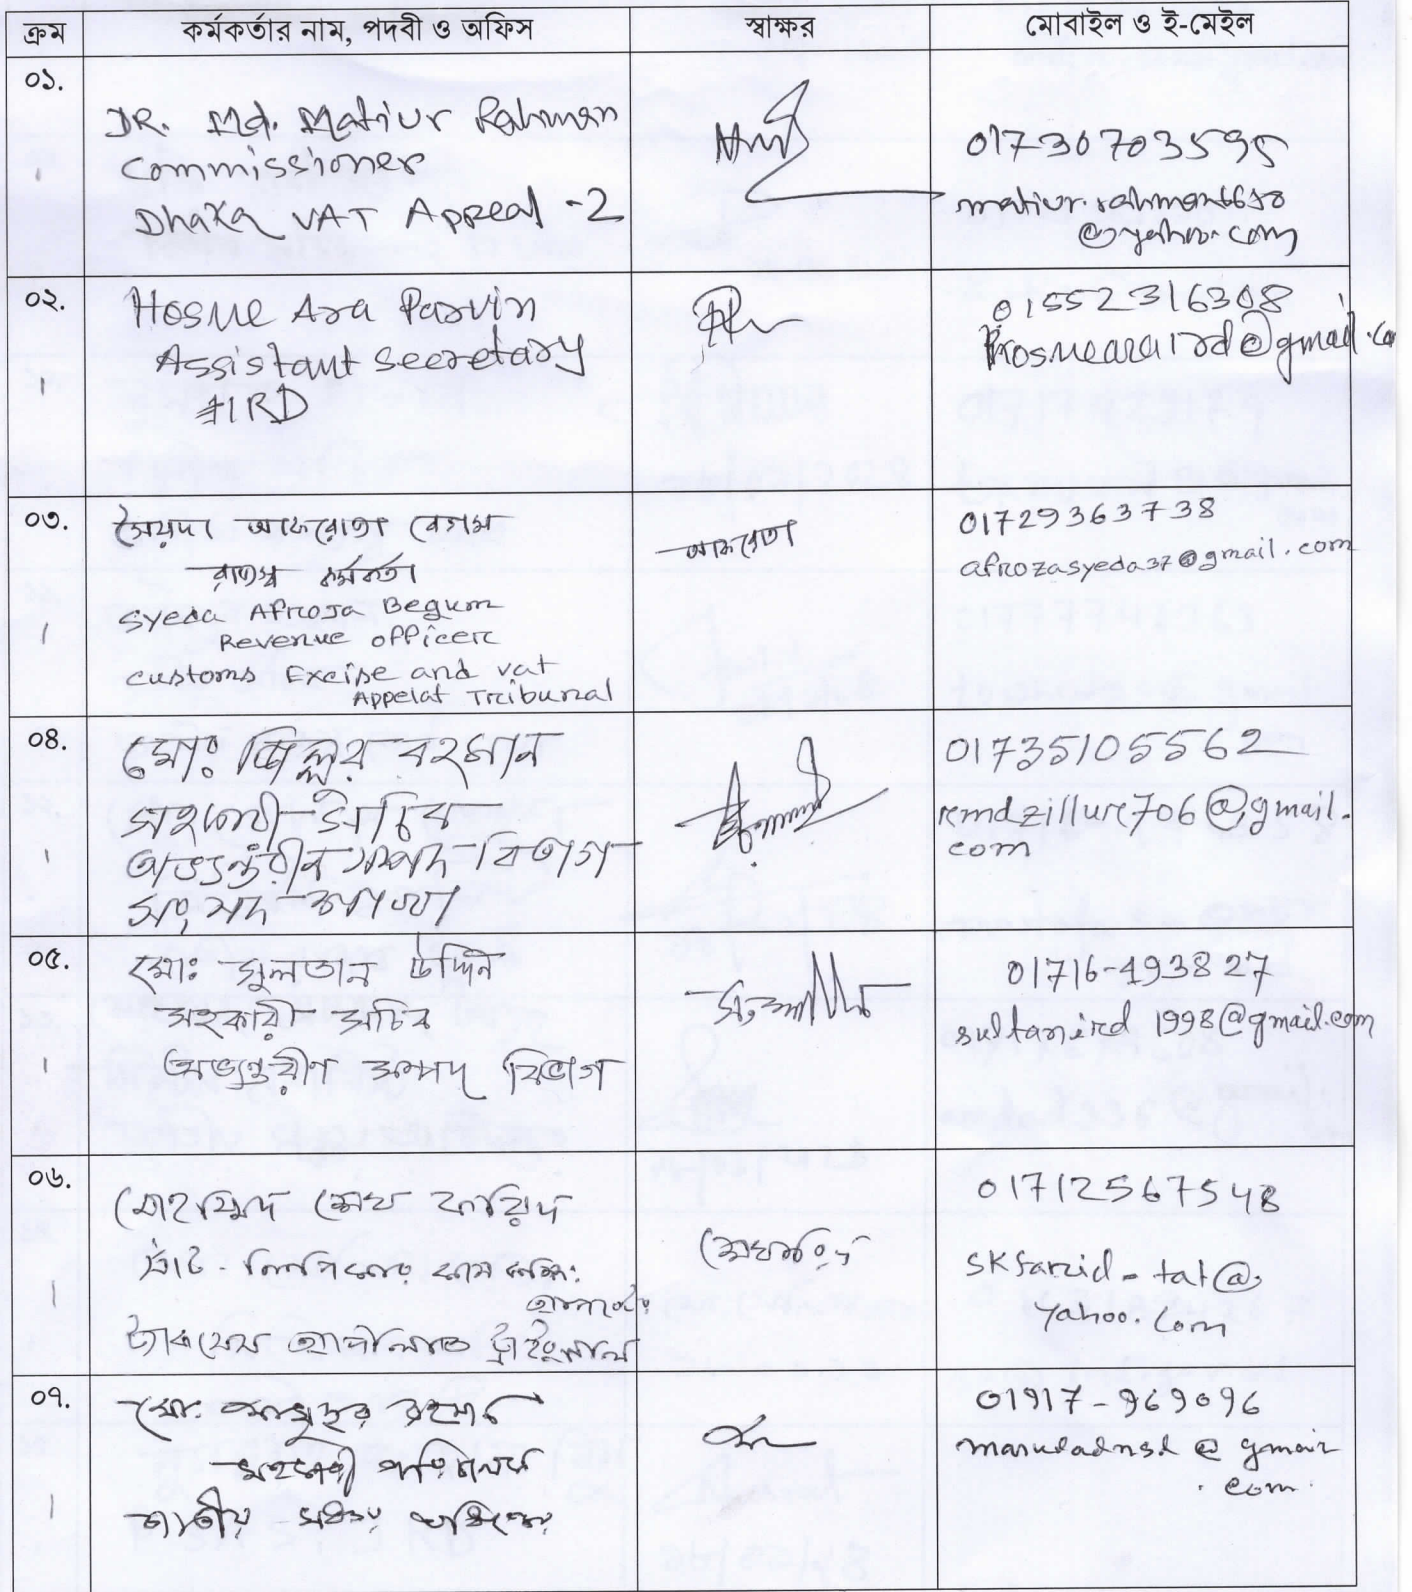 ক্রম কর্মকর্তার নাম, পদবী ও অফিস স্বাক্ষর মোবাইল ও ই-মেইল
০১.
DR. Md. Matiur Rahman
Commissioner
Dhaka VAT Appeal -2
01730703595
matiur.rahman
@yahoo.com
০২.
Hosne Ara Parvin
Assistant secretary
IRD
01552316308
hosneara1rd@gmail.co
০৩.
সৈয়দা আফরোজা বেগম
রাজস্ব কর্মকর্তা
Syeda Afroja Begum
Revenue officer
customs Excise and vat
Appelat Tribunal
আফরোজা
01729363738
afrozasyeda37@gmail.com
০৪.
মোঃ জিল্লুর রহমান
সহকারী সচিব
অভ্যন্তরীণ সম্পদ বিভাগ
সংসদ শাখা
01735105562
rmdzillur706@gmail.
com
০৫.
মোঃ সুলতান উদ্দিন
সহকারী সচিব
অভ্যন্তরীণ সম্পদ বিভাগ
01716-493827
sultanird1998@gmail.com
০৬.
মোহাম্মদ শেখ ফরিদ
ট্যাকসেস আপীলাত ট্রাইবুনাল
01712567548
skfarid_tat@
yahoo.com
০৭.
মো: মাসুদুর রহমান
সহকারী পরিচালক
জাতীয় সঞ্চয় অধিদপ্তর
01917-969096
masudadnsd@gmail
.com